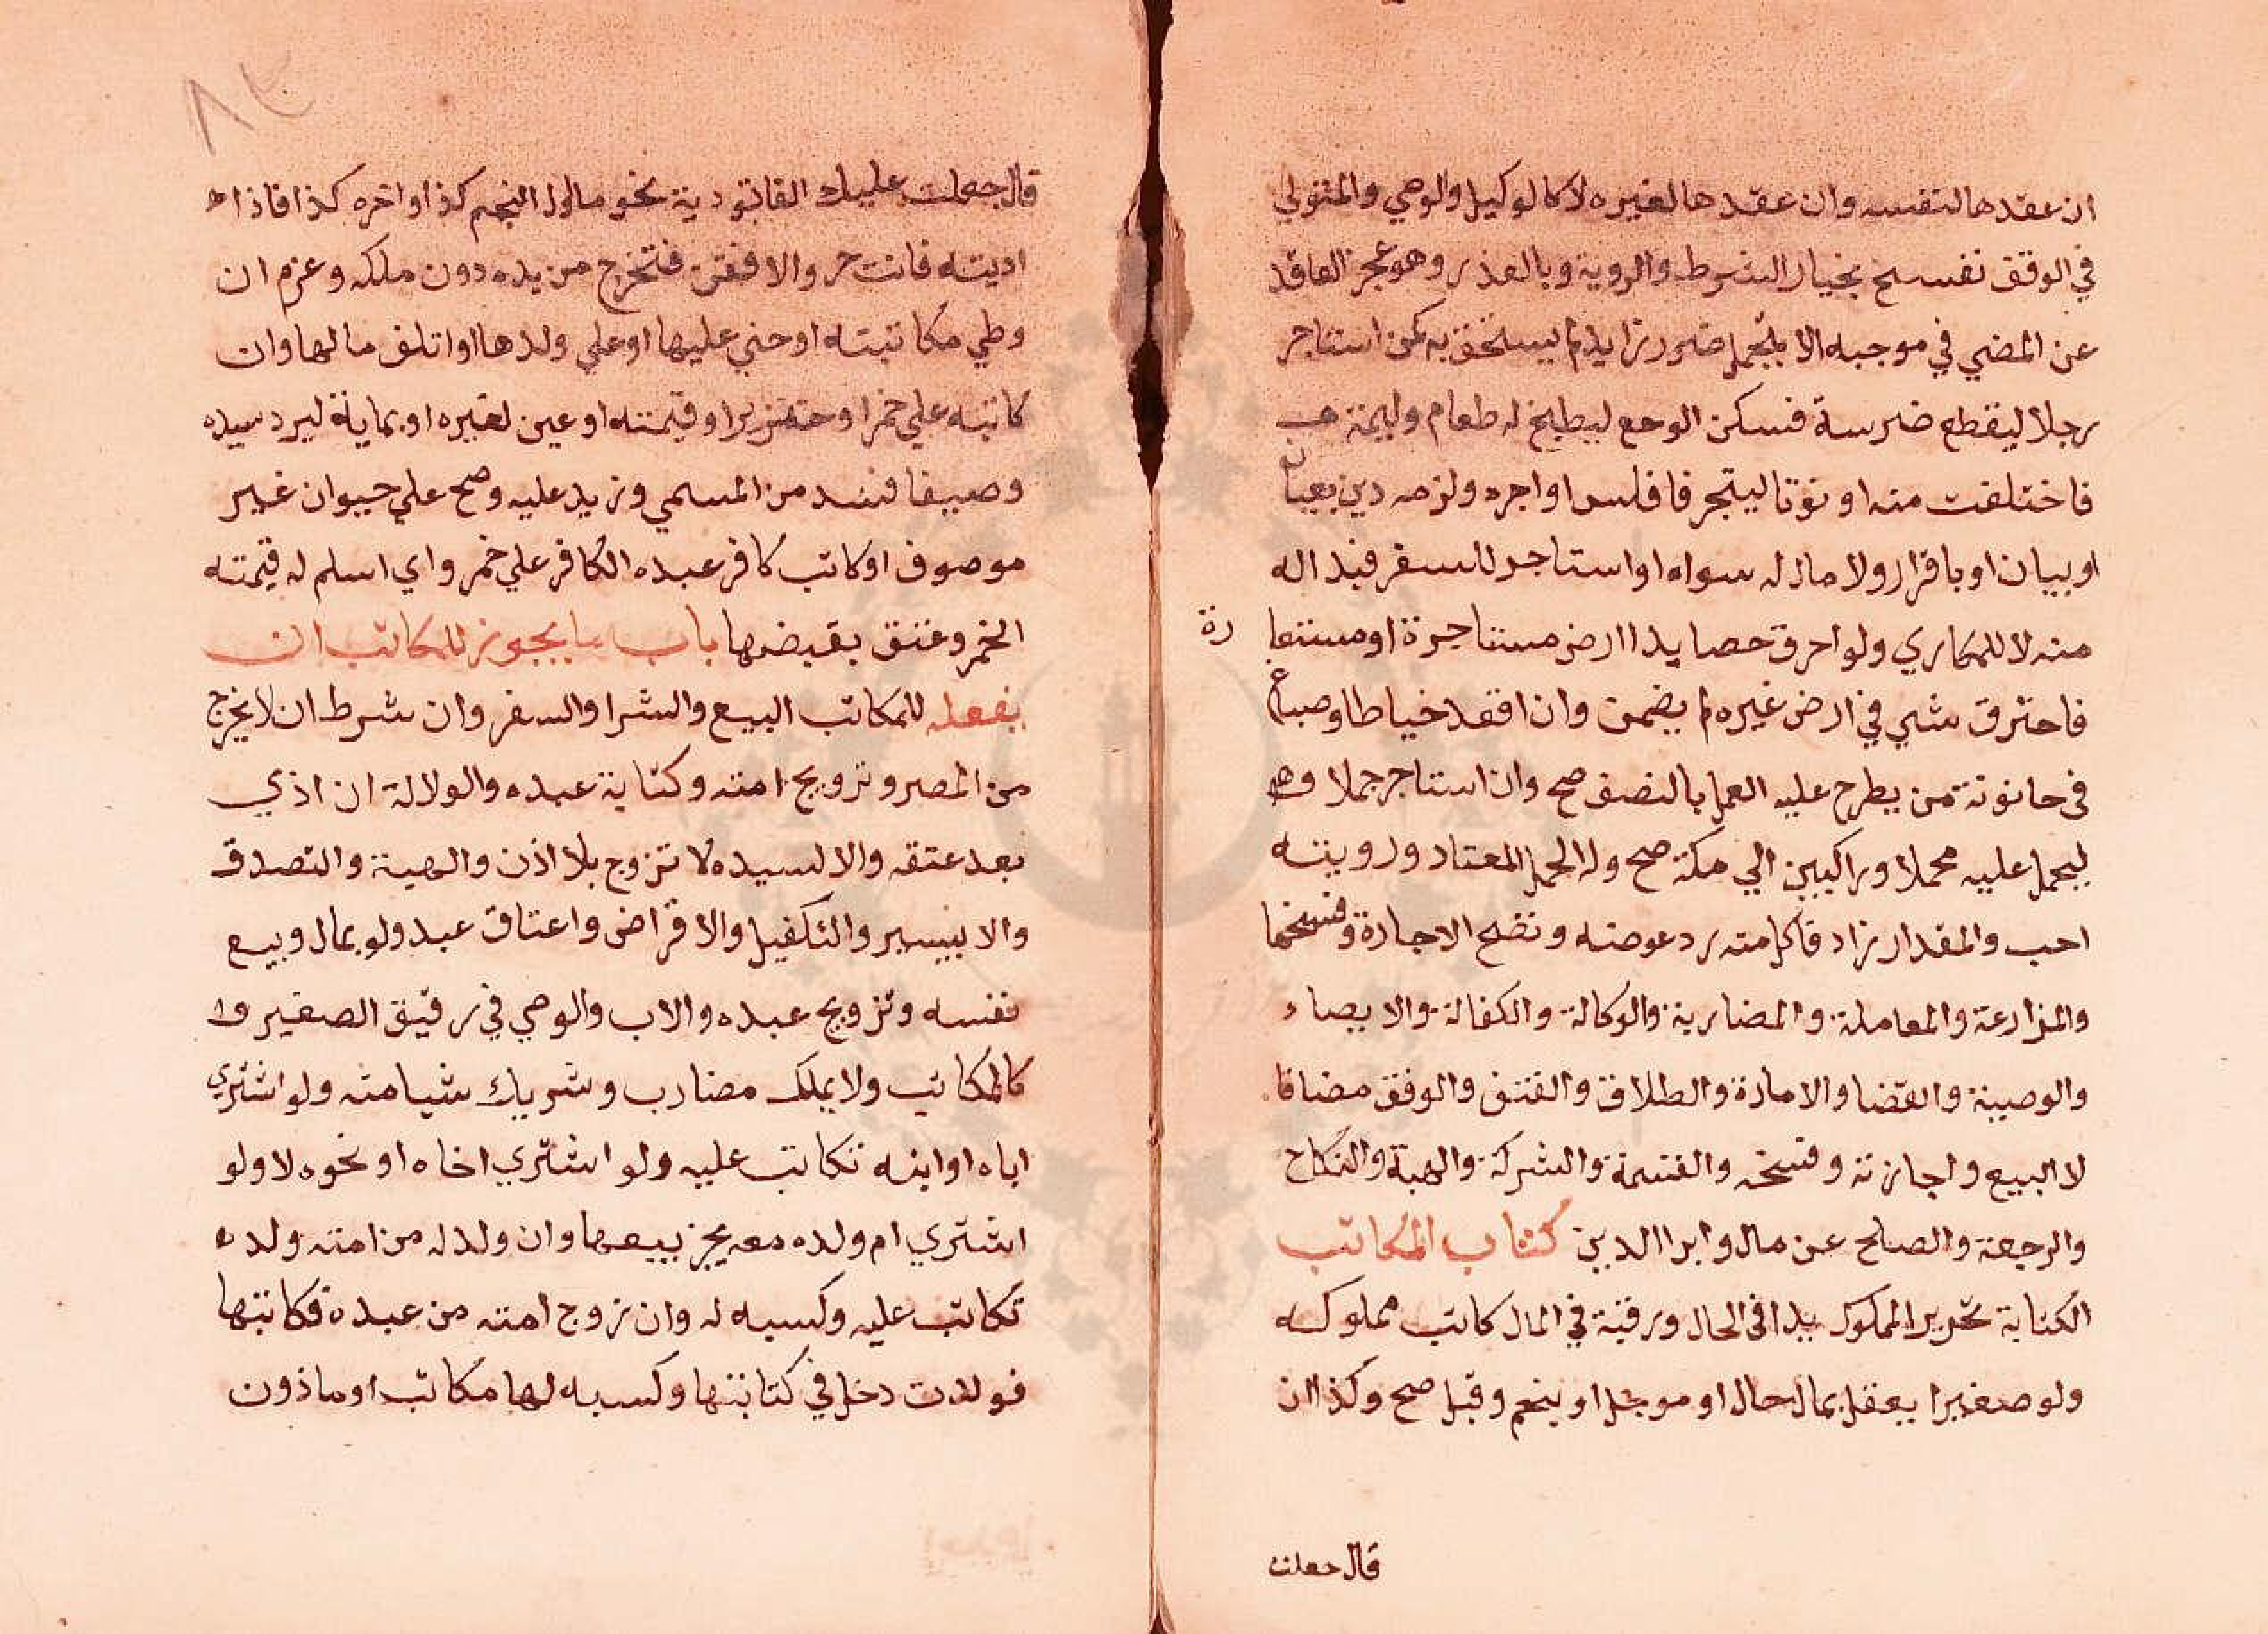 ان عقدها لنفسه وان عقدها لغيره لا كالوكيل والوصي والمتولي
في الوقف تفسخ بخيار الشرط والروية وبالعذر وهو عجز العاقد
عن المضي في موجبه الا بتحمل ضرر زايد لم يستحق به كمن استاجر
رجلا ليقطع ضرسه فسكن الوجع ليطبخ له طعام وليمة
فاختلفت منه او نوتا ليتجر فافلس او اجره ولزمه دين بعيان
او بيان او باقرار ولا مال له سواه او استاجر للسفر فبدا له
منه لا للمكاري ولو احرق حصايد ارض مستاجرة او مستعارة
فاحترق شي في ارض غيره لم يضمن وان اقعد خياط او صباغ
في حانوته من يطرح عليه العمل بالنصف صح وان استاجر جملا
ليحمل عليه محملا وراكبين الي مكة صح وله الحمل المعتاد ورويته
احب والمقدار زاد فاكل منه رد عوضه وتصح الاجارة وفسخها
والمزارعة والمعاملة والمضاربة والوكالة والكفالة والايصاء
والوصية والقضا والامارة والطلاق والعتق والوقف مضافا
لا البيع واجازته وفسخه والقسمة والشركة والهبة والنكاح
والرجعة والصلح عن مال وابرا الدين كتاب المكاتب
الكتابة تحرير المملوك يدا في الحال ورقبة في المال كاتب مملوكه
ولو صغيرا يعقل بمال حال او موجل او ينجم وقبل صح وكذا ان
قال جعلت
قال جعلت عليك الفا تودية نحو ما اول النجم كذا واخره كذا فاذا
اديته فانت حر والا فقن فتخرج من يده دون ملكه وغرم ان
وطي مكاتبته او جني عليها او علي ولدها او اتلف مالها وان
كاتبه علي خمر او خنزير او قيمته او عين لغيره او بماية ليرد سيده
وصيفا فسد من المسمي وزيد عليه وصح علي حيوان غير
موصوف او كاتب كافر عبده الكافر علي خمر واي اسلم له قيمته
الخمر وعتق بقبضها باب ما يجوز للمكاتب ان
يفعله للمكاتب البيع والشرا والسفر وان شرط ان لا يخرج
من المصر وتزويج امته وكتابة عبده والولا له ان ادي
بعد عتقه والا لسيده لا تزوج بلا اذن والهبة والتصدق
والا بيسير والتكفيل والاقراض واعتاق عبد ولو بمال وبيع
نفسه وتزويج عبده والاب والوصي في رقيق الصغير
كالمكاتب ولا يملك مضارب وشريك شيا منه ولو اشتري
اباه او ابنه تكاتب عليه ولو اشتري اخاه او نحوه لا ولو
اشتري ام ولده معه يجز بيعها وان ولد له من امته ولد
تكاتب عليه وكسبه له وان زوج امته من عبده فكاتبها
فولدت دخل في كتابتها وكسبه لها مكاتب او ماذون